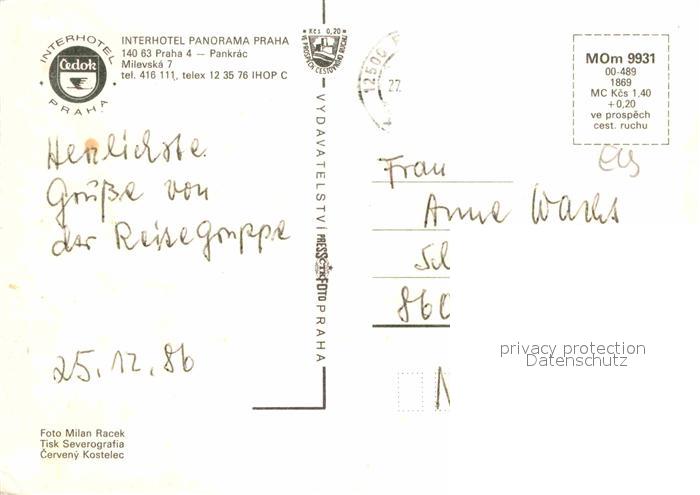 INTERHOTEL
Čedok
PRAHA
INTERHOTEL PANORAMA PRAHA
140 63 Praha 4 – Pankrác
Milevská 7
tel. 416 111, telex 12 35 76 IHOP C
Kčs 0,20
VE PROSPĚCH CESTOVNÍHO RUCHU
12500 P
27
MOm 9931
00-489
1869
MC Kčs 1,40
+0,20
ve prospěch
cest. ruchu
Herzlichste
Grüße von
der Reisegruppe
25.12.86
VYDAVATELSTVÍ PRESSFOTO PRAHA
ČTK
Frau
Anne Wachs
860
privacy protection
Datenschutz
Foto Milan Racek
Tisk Severografia
Červený Kostelec